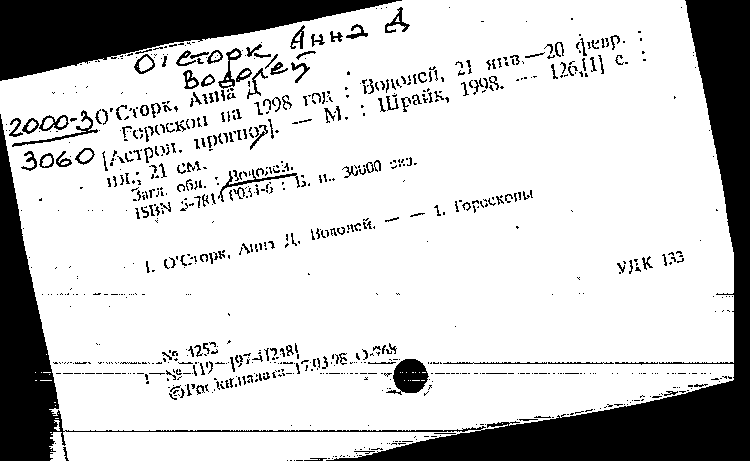 О'Сторк, Анна Д
Водолей
2000-3
3060
О'Сторк, Анна Д
Гороскоп на 1998 год : Водолей, 21 янв.—20 февр. :
[Астрол. прогноз]. — М. : Шрайк, 1998. — 126,[1] с. :
ил.; 21 см.
Загл. обл. : Водолей.
ISBN 5-7814-0034-6 : Б. ц.. 30000 экз.
1. О'Сторк, Анна Д. Водолей. — — 1. Гороскопы
УДК 133
№ 4252
№ [97-41248]
© Рос. кн. палата 17.03.98